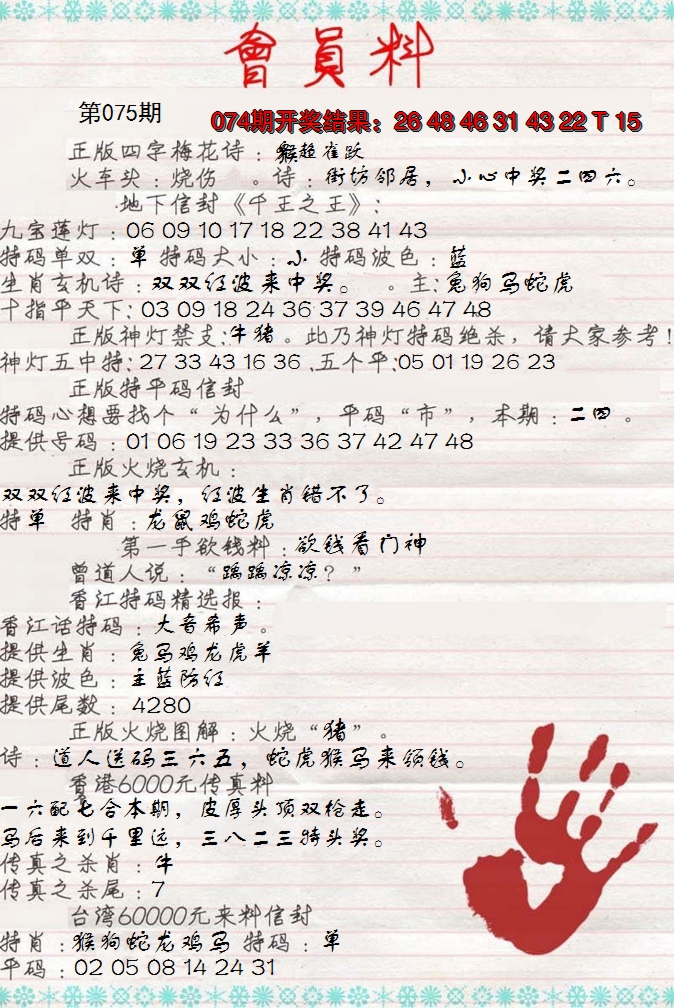 會員料
第075期
074期开奖结果：26 48 46 31 43 22 T 15
正版四字梅花诗：猴超雀跃
火车头：烧伤 。诗：街坊邻居，小心中奖二四六。
地下信封《千王之王》：
九宝莲灯：06 09 10 17 18 22 38 41 43
特码单双：单 特码大小：小 特码波色：蓝
生肖玄机诗：双双红波来中奖。 。主：兔狗马蛇虎
十指平天下：03 09 18 24 36 37 39 46 47 48
正版神灯禁支：牛猪。此乃神灯特码绝杀，请大家参考！
神灯五中特：27 33 43 16 36 .五个平：05 01 19 26 23
正版特平码信封
特码心想要找个“为什么”，平码“市”，本期：二四。
提供号码：01 06 19 23 33 36 37 42 47 48
正版火烧玄机：
双双红波来中奖，红波生肖错不了。
特单 特肖：龙鼠鸡蛇虎
第一手欲钱料：欲钱看门神
曾道人说：“踽踽凉凉？”
香江特码精选报：
香江话特码：大音希声。
提供生肖：兔马鸡龙虎羊
提供波色：主蓝防红
提供尾数：4280
正版火烧图解：火烧“猪”。
诗：道人送码三六五，蛇虎猴马来领钱。
香港6000元传真料
一六配七合本期，皮厚头顶双枪走。
马后来到千里远，三八二三特头奖。
传真之杀肖：牛
传真之杀尾：7
台湾60000元来料信封
特肖：猴狗蛇龙鸡马 特码：单
平码：02 05 08 14 24 31